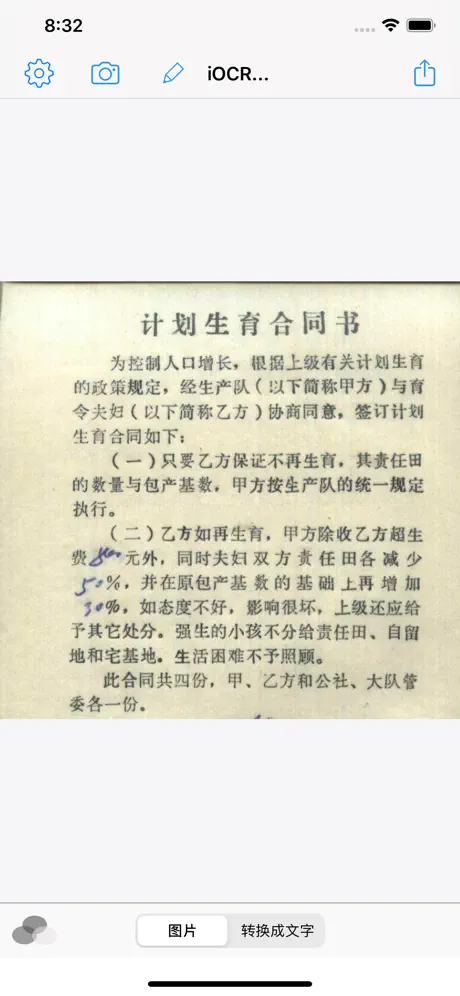 8:32
iOCR...
计划生育合同书
为控制人口增长，根据上级有关计划生育
的政策规定，经生产队（以下简称甲方）与育
令夫妇（以下简称乙方）协商同意，签订计划
生育合同如下：
（一）只要乙方保证不再生育，其责任田
的数量与包产基数，甲方按生产队的统一规定
执行。
（二）乙方如再生育，甲方除收乙方超生
费800元外，同时夫妇双方责任田各减少
50%，并在原包产基数的基础上再增加
30%，如态度不好，影响很坏，上级还应给
予其它处分。强生的小孩不分给责任田、自留
地和宅基地。生活困难不予照顾。
此合同共四份，甲、乙方和公社、大队管
委各一份。
图片
转换成文字